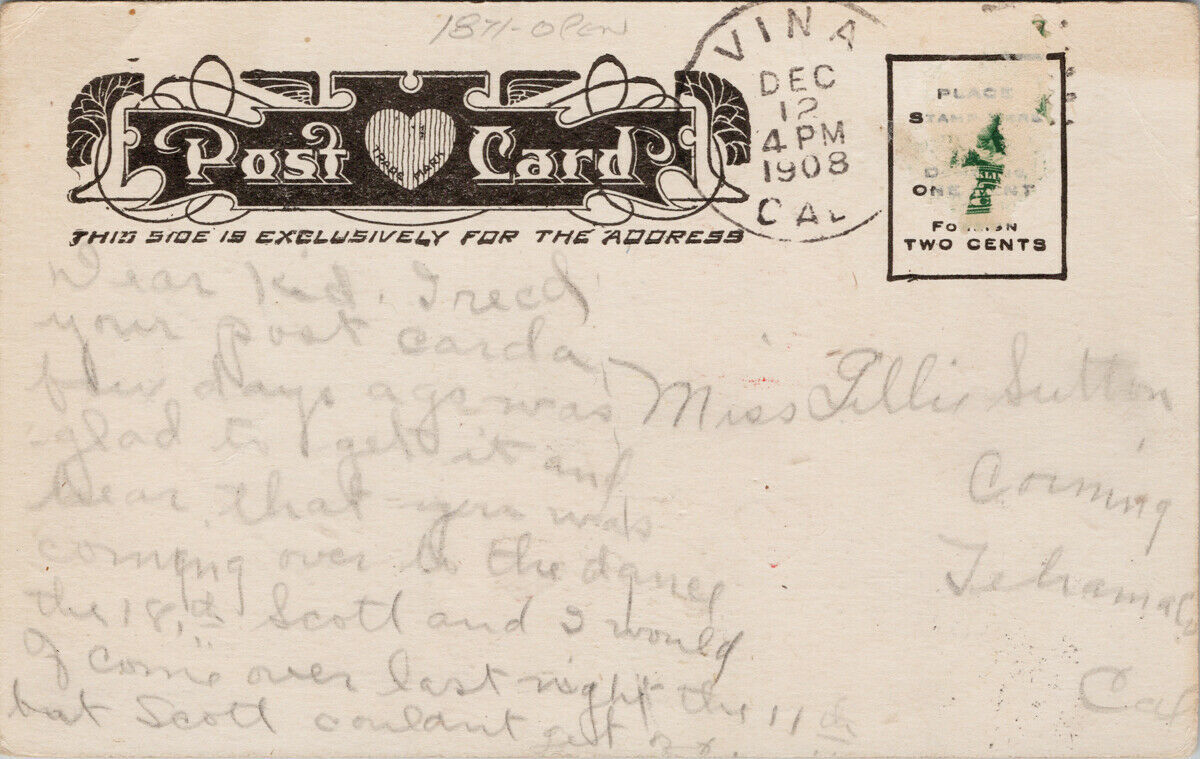 1871-open
VINA
DEC
12
4 PM
1908
CAL
Post Card
THIS SIDE IS EXCLUSIVELY FOR THE ADDRESS
PLACE
STAMP HERE
ONE CENT
FOREIGN
TWO CENTS
Dear Kid. I recd
your post card a
few days ago was
glad to get it and
hear that you was
coming over to the dance
the 18,th Scott and I would
of come over last night the 11th
but Scott couldnt get
Miss Tillie Sutton
Corning
Tehama Co
Cal